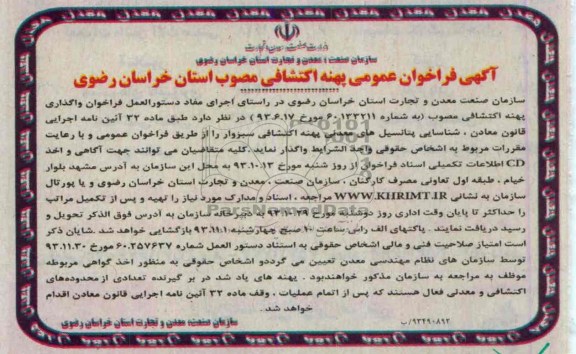 سازمان صنعت ، معدن و تجارت استان خراسان رضوی
آگهی فراخوان عمومی پهنه اکتشافی مصوب استان خراسان رضوی
سازمان صنعت معدن و تجارت استان خراسان رضوی در راستای اجرای مفاد دستورالعمل فراخوان واگذاری
پهنه اکتشافی مصوب (به شماره ۶۰.۱۳۳۲۱۱ مورخ ۹۳.۶.۱۷) در نظر دارد طبق ماده ۳۲ آئین نامه اجرایی
قانون معادن ، شناسایی پتانسیل های معدنی پهنه اکتشافی سبزوار را از طریق فراخوان عمومی و با رعایت
مقررات مربوط به اشخاص حقوقی واجد الشرایط واگذار نماید .کلیه متقاضیان می توانند جهت آگاهی و اخذ
CD اطلاعات تکمیلی اسناد فراخوان از روز شنبه مورخ ۹۳.۱۰.۱۳ به محل این سازمان به آدرس مشهد بلوار
خیام ، طبقه اول تعاونی مصرف کارکنان ، سازمان صنعت ، معدن و تجارت استان خراسان رضوی و یا پورتال
سازمان به نشانی WWW.KHRIMT.IR مراجعه ، اسناد و مدارک مورد نیاز را تهیه و پس از تکمیل مراتب
را حداکثر تا پایان وقت اداری روز دوشنبه مورخ ۹۳.۱۰.۲۹ به دبیرخانه سازمان به آدرس فوق الذکر تحویل و
رسید دریافت نمایند . پاکتهای الف راس ساعت ۱۰ صبح چهارشنبه ۹۳.۱۱.۱ بازگشایی خواهد شد .شایان ذکر
است امتیاز صلاحیت فنی و مالی اشخاص حقوقی به استناد دستور العمل شماره ۶۰.۲۵۷۶۳۷ مورخ ۹۳.۱۱.۳۰
توسط سازمان های نظام مهندسی معدن تعیین می گرددو اشخاص حقوقی به منظور اخذ گواهی مربوطه
موظف به مراجعه به سازمان مذکور خواهندبود . پهنه های یاد شد در بر گیرنده تعدادی از محدوده‌های
اکتشافی و معدنی فعال هستند که پس از اتمام عملیات ، وفق ماده ۳۲ آئین نامه اجرایی قانون معادن اقدام
خواهد شد .
سازمان صنعت، معدن و تجارت استان خراسان رضوی
۹۳۴۹۰۸۹۲/ب